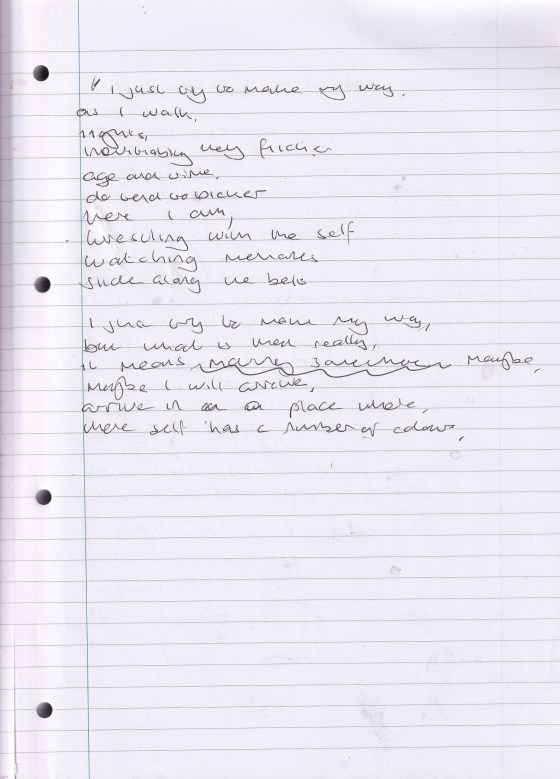 " I just try to make my way.
as I walk,
nights,
they flicker
age and time,
do tend to bicker
here I am,
wrestling with the self
watching memories
slide along the belt
I just try to make my way,
but what is that really,
it means making maybe,
maybe I will arrive,
arrive in a place where,
where self has a number of colours,